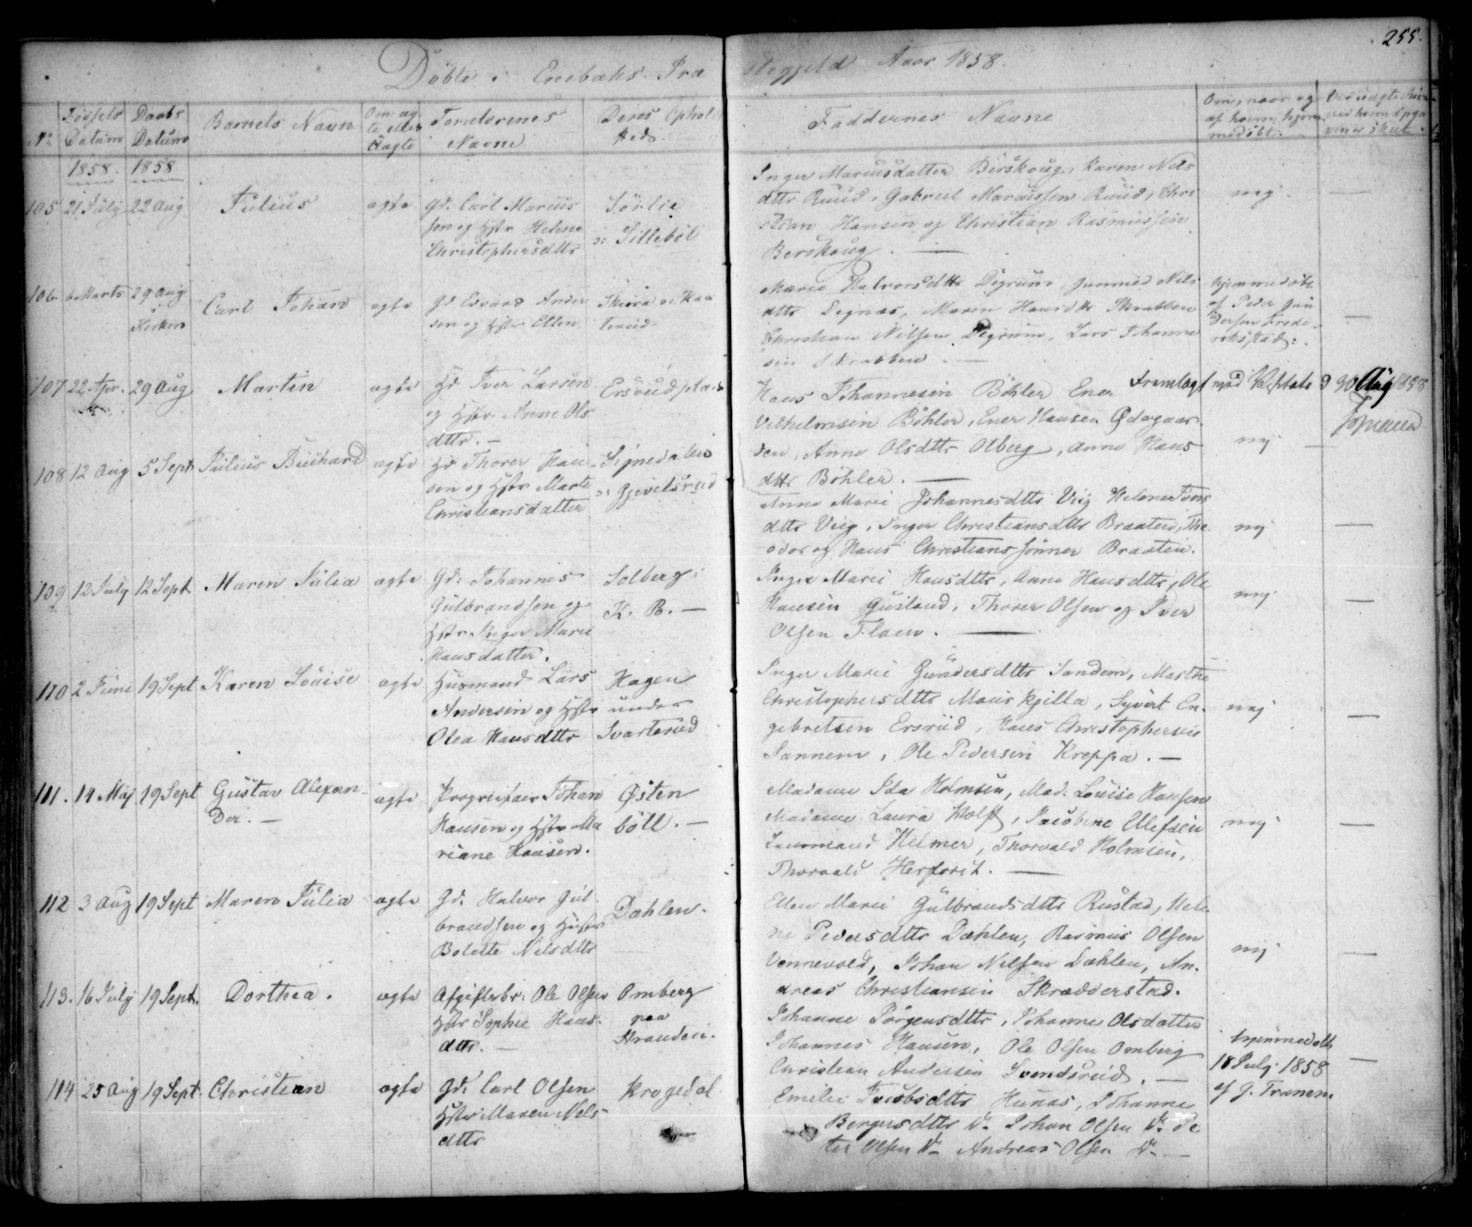 255.
Döbte i Enebaks Præstegjeld Aar 1858.
No
Födsels Datum
Daabs Datum
Barnets Navn
Om ægte eller Uægte
Forældrenes Navne
Deres Opholdssted
Faddernes Navne
Om, naar og af hvem hjemmedöbt.
1858. 1858
105 21 July 22 Aug Julius ægte Gd. Carl Marius
sen og Hstr Helene
Christophersdttr
Sörlie
Silleböl
Inger Mariusdatter Birskoug, Karen Nils
dttr Ruud, Gabriel Mariussen Ruud, Chri
stian Hansen og Christian Rasmussen
Berskoug. —
nej —
106. 6 Marts 29 Aug
Kirken
Carl Johan ægte Gd. Edvard Ander
sen og Hstr Ellen.
Marie Halvorsdttr Digrum, Gunnild Nils
dttr Degnæs, Maren Hansdttr Skrabben
Christian Nilsen Digrum, Lars Johanne
sen Skrabben. —
hjemmedöbt
af Peder Gun
dersen Frede-
rikstad. —
107 22 Apr. 29 Aug Martin ægte Gd. Iver Larsen
og Hstr. Anne Ols
dttr. —
Ersrudplads
Hans Johannesen Böhler Ener
Vilhelmsen Böhler, Ener Hansen Ödegaar
den, Anne Olsdttr Olberg, Anne Hans
dttr Böhler. —
Fremlagt ved 30 Aug 1858
nej —
108 12 Aug 5 Sept. Julius Buchard ægte Gd Thorer Han
sen og Hstr Marte
Christiansdatter
Signedalen
Gjevelsrud
Anne Marie Johannesdttr Viig Helene Töns
dttr Viig, Inger Christiansdttr Braaten, The
odor og Hans Christianssönner Braaten.
nej. —
109 12 July 12 Sept Maren Julia ægte Gd. Johannes
Gulbrandsen og
Hstr Inger Marie
Hansdatter.
Solberg i
K. B. —
Inger Marie Hansdttr, Anne Hansdttr, Ole
Hansen Gusland, Thorer Olsen og Iver
Olsen Flaen. —
nej —
110 2 Juni 19 Sept Karen Louise ægte Husmand Lars
Andersen og Hstr
Olea Hansdttr
Hagen
under
Svarterud
Inger Marie Gundersdttr Sandem, Marthe
Christophersdttr Mauskjilla, Syvert En-
gebretsen Ersrud, Hans Christophersen
Sannem, Ole Pedersen Kroppa. —
nej —
111. 14 Maj 19 Sept Gustav Alexan-
der. —
ægte Proprietair Johan
Hansen og Hstr Ma
riane Hansen.
Östen
böll. —
Madame Ida Holmsen, Mad. Louise Hansen
Madame Laura Wolff, Jacobine Ellefsen
Lensmand Heimer, Thorvald Holmsen,
Thorvald Herforit. —
nej —
112 3 Aug 19 Sept Maren Julia ægte Gd. Halvor Gul
brandsen og Hstr
Bolette Nilsdttr
Dæhlen.
Ellen Marie Gulbrandsdttr Rustad, Hele
ne Pedersdttr Dæhlen, Rasmus Olsen
Vennevold, Johan Nilsen Dæhlen, An-
dreas Christiansen Skrædderstad.
nej —
113. 16 July 19 Sept. Dorthea. ægte Afgifterbr. Ole Olsen
Hstr Sophie Hans-
dttr. —
Omberg
paa
Johanne Jörgensdttr, Johanne Olsdatter
Johannes Hansen, Ole Olsen Omberg
Christian Andersen Svendsrud. —
hjemmedöbt
18 July 1858
af G. Tranem. —
114 25 Aug 19 Sept. Christian ægte Gd. Carl Olsen
Hstr Maren Nils-
dttr
Krogedal
Emilie Jacobsdttr Hunas, Johanne
Bergersdttr Do Johan Olsen Do Pe
ter Olsen Do Andreas Olsen Do —